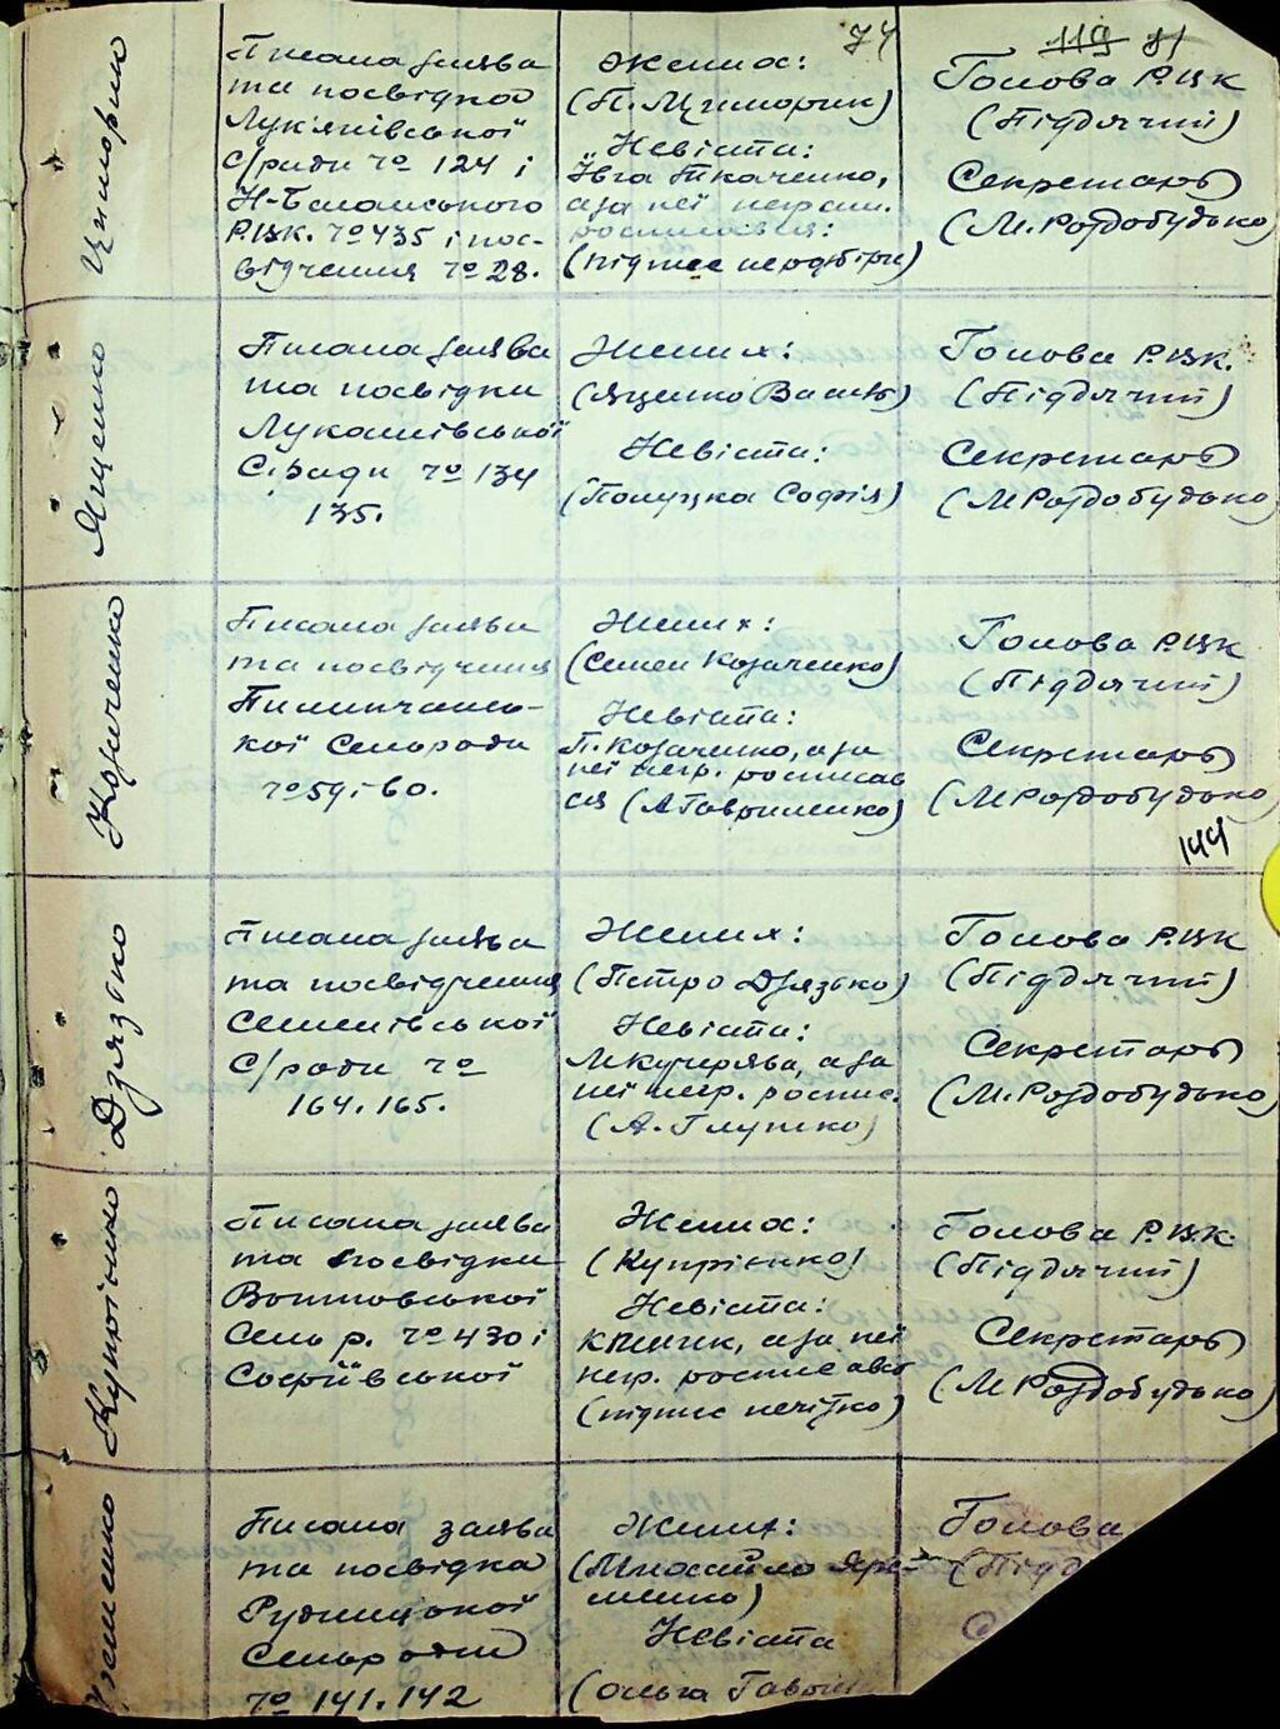 74
119 81
Циморик
Писана заява
та посвідкою
Лук'янівської
С/ради № 124 і
Н-Басанського
Р.В.К. № 435 і пос-
відчення № 28.
Жених:
(П. Циморик)
Невіста:
Ївга Ткаченко,
а за неї неграм.
росписався:
(підпис нерозбірн)
Голова РВК
(Підлячий)
Секретарь
(М. Роздобудько)
Яценко
Писана заява
та посвідки
Лукашівської
С. Ради № 134
135.
Жених:
(Яценко Василь)
Невіста:
(Полуцка Софія)
Голова Р.В.К.
(Підлячий)
Секретарь
(М Роздобудько)
Козаченко
Писана заява
та посвідчення
-
кої Сельради
№ 59 і 60.
Жених:
(Семен Козаченко)
Невіста:
П. Козаченко, а за
неї негр. росписав
ся (А Гавриленко)
Голова РВК
(Підлячий)
Секретарь
(М Роздобудько)
144
Дзязько
Писана заява
та посвідчення
Семенівської
С/ради №
164. 165.
Жених:
(Петро Дзязько)
Невіста:
М Кучерява, а за
неї негр. роспис.
(А. Глушко)
Голова РВК
(Підлячий)
Секретарь
(М. Роздобудько)
Купрієнко
Писана заява
та посвідки
Войтовської
Сель р. № 430 і
Софіївської
Жених:
(Купрієнко)
Невіста:
а за неї
негр. росписався
(підпис нечітко)
Голова Р.В.К.
(Підлячий)
Секретарь
(М Роздобудько)
Писана заява
та посвідка
Рудницької
Сельради
№ 141. 142
Жених:
(Михайло Яре-
менко)
Невіста
(Ольга
Голова